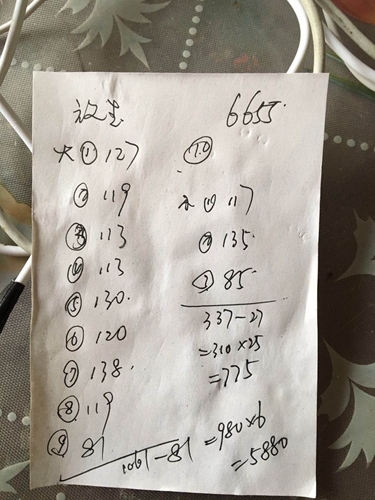 6655.
大① 127
② 119
③ 113
④ 113
⑤ 130.
⑥ 120
⑦ 138.
⑧ 119
⑨ 81
1061-81
=980×6
=5880
⑩
① 117
② 135
③ 85.
337-27
=310×25
=775